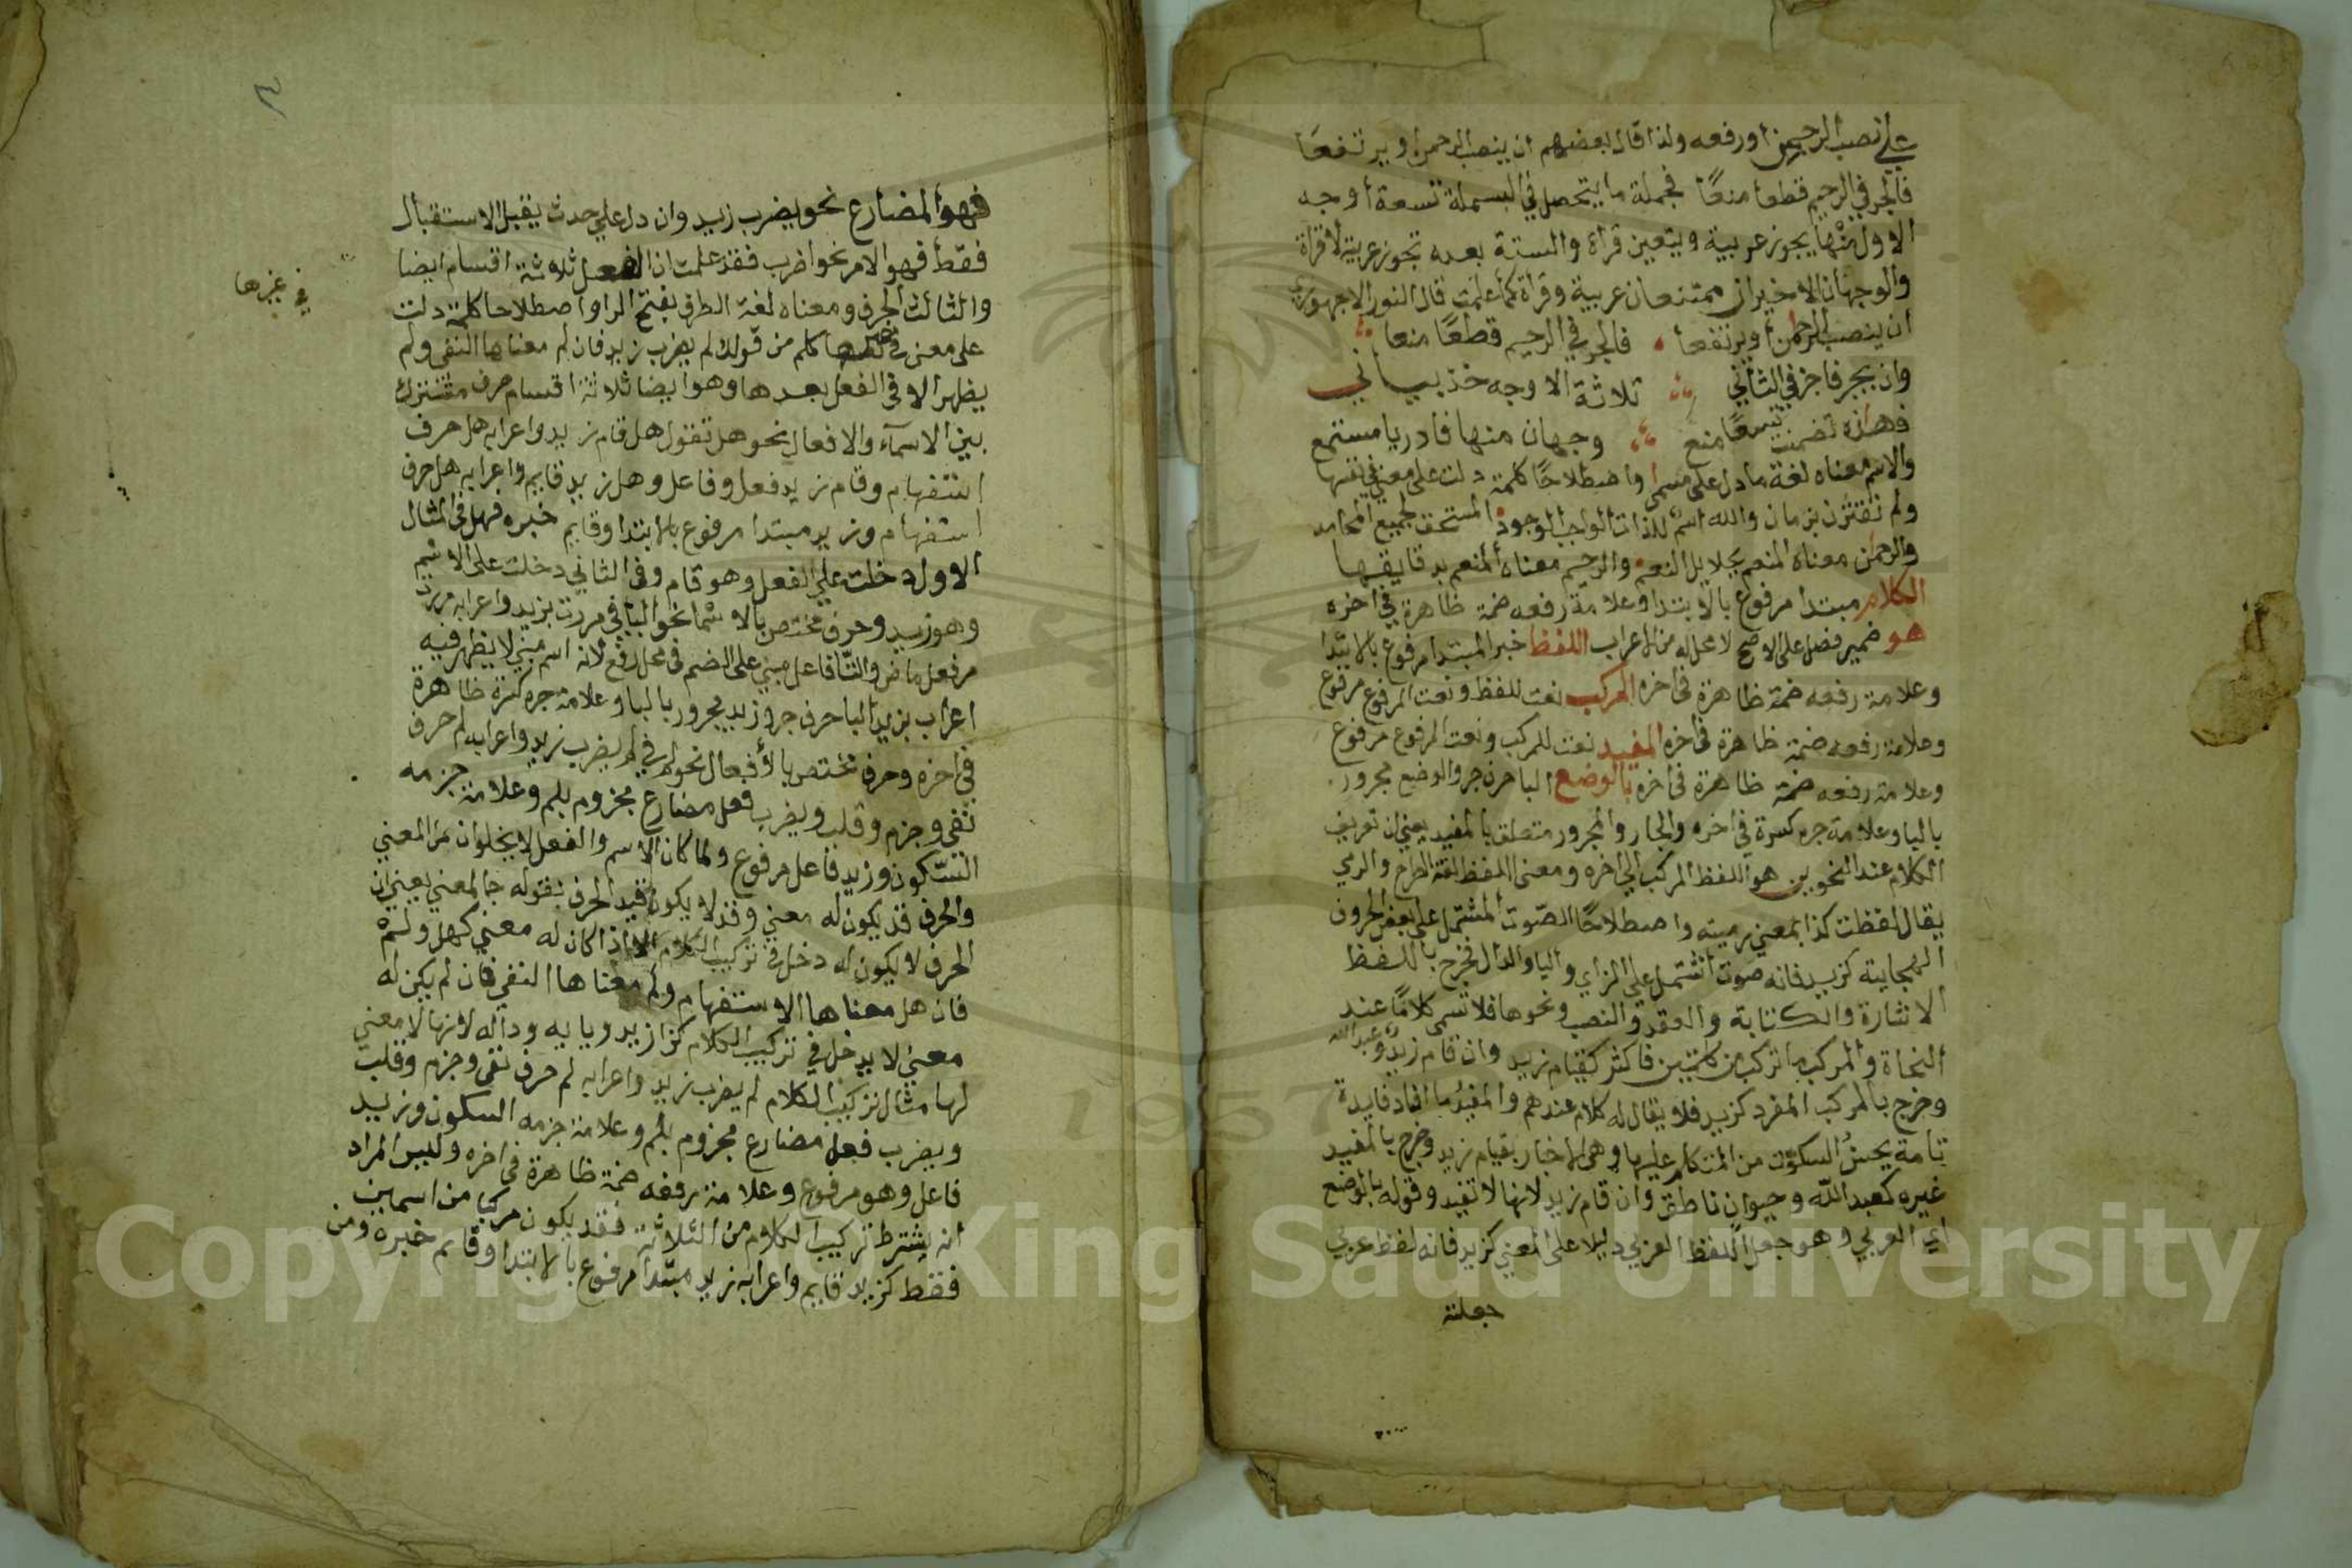 علي نصب الرحيم او رفعه ولذا قال بعضهم ان ينصب الرحمن او يرتفعا
فالجر في الرحيم قطعا منعا فجملة ما يتحصل في البسملة تسعة أوجه
الاول منها يجوز عربية ويتعين قراة والستة بعده تجوز عربية لا قراة
والوجهان الاخيران ممتنعان عربية وقراة كما علمت قال النور الاجهوري
ان ينصب الرحمن أو يرتفعا فالجر في الرحيم قطعا منعا
وان يجر فاجز في الثاني ثلاثة الاوجه خذ بياني
فهذه تضمنت تسعا منع وجهان منها فادر يا مستمع
والاسم معناه لغة ما دل على مسمى واصطلاحا كلمة دلت على معني في نفسها
ولم تقترن بزمان والله اسم للذات الواجب الوجود المستحق لجميع المحامد
والرحمن معناه المنعم بجلايل النعم والرحيم معناه المنعم بدقايقها
الكلام مبتدا مرفوع بالابتدا وعلامة رفعه ضمة ظاهرة في اخره
هو ضمير فصل على الاصح لا محل له من الاعراب اللفظ خبر المبتدا مرفوع بالابتدا
وعلامة رفعه ضمة ظاهرة في اخره المركب نعت للفظ ونعت المرفوع مرفوع
وعلامة رفعه ضمة ظاهرة في اخره المفيد نعت للمركب ونعت المرفوع مرفوع
وعلامة رفعه ضمة ظاهرة في اخره بالوضع البا حرف جر والوضع مجرور
بالبا وعلامة جره كسرة في اخره والجار والمجرور متعلق بالمفيد يعني ان تعريف
الكلام عند النحويين هو اللفظ المركب الي اخره ومعنى اللفظ لغة الطرح والرمي
يقال لفظت كذا بمعني رميته واصطلاحا الصوت المشتمل على بعض الحروف
الهجايية كزيد فانه صوت اشتمل على الزاي واليا والدال فخرج باللفظ
الاشارة والكتابة والعقد والنصب ونحوها فلا تسمى كلاما عند
النحاة والمركب ما تركب من كلمتين فاكثر كقيام زيد وان قام زيد وعبد الله
وخرج بالمركب المفرد كزيد فلا يقال له كلام عندهم والمفيد ما افاد فايدة
تامة يحسن السكوت من المتكلم عليها وهي الاخبار بقيام زيد وخرج بالمفيد
غيره كعبد الله وحيوان ناطق وان قام زيد لانها لا تفيد وقوله بالوضع
اي العربي وهو جعل اللفظ العربي دليلا على المعني كزيد فانه لفظ عربي
جعلته
فهو المضارع نحو يضرب زيد وان دل علي حدث يقبل الاستقبال
فقط فهو الامر نحو اضرب فقد علمت ان الفعل ثلاثة اقسام ايضا
والثالث الحرف ومعناه لغة الطرف بفتح الرا واصطلاحا كلمة دلت
على معنى في كلم من قولك لم يضرب زيد فان لم معناها النفي ولم
في غيرها
يظهر الا في الفعل بعدها وهو ايضا ثلاثة اقسام حرف مشترك
بين الاسمآء والافعال نحو هل تقول هل قام زيد واعرابه هل حرف
استفهام وقام زيد فعل وفاعل وهل زيد قايم واعرابه هل حرف
استفهام وزيد مبتدا مرفوع بالابتدا وقايم خبره فهل في المثال
الاول دخلت علي الفعل وهو قام وفي الثاني دخلت على الاسم
وهو زيد وحرف مختص بالاسما نحو البا في مررت بزيد واعرابه مررت
مر فعل ماض والتا فاعل مبني على الضم في محل رفع لانه اسم مبني لا يظهر فيه
اعراب بزيد البا حرف جر وزيد مجرور بالبا وعلامة جره كسرة ظاهرة
في اخره وحرف مختص بالأفعال نحو لم في لم يضرب زيد واعرابه لم حرف
نفي وجزم وقلب ويضرب فعل مضارع مجزوم بلم وعلامة جزمه
السكون وزيد فاعل مرفوع ولما كان الاسم والفعل لا يخلوان من المعني
والحرف قد يكون له معني وقد لا يكون قيد الحرف بقوله جا لمعني يعني ان
الحرف لا يكون له دخل في تركيب الكلام الا اذا كان له معني كهل ولم
فان هل معناها الاستفهام ولم معناها النفي فان لم يكن له
معني لا يدخل في تركيب الكلام كزا زيد ويايه وداله لانها لا معني
لها مثال تركيب الكلام لم يضرب زيد واعرابه لم حرف نفي وجزم وقلب
ويضرب فعل مضارع مجزوم بلم وعلامة جزمه السكون وزيد
فاعل وهو مرفوع وعلامة رفعه ضمة ظاهرة في اخره وليس المراد
انه يشترط تركيب الكلام من الثلاثة فقد يكون مركبا من اسمين
فقط كزيد قايم واعرابه زيد مبتدا مرفوع بالابتدا وقايم خبره ومن
Copyright © King Saud University
1957